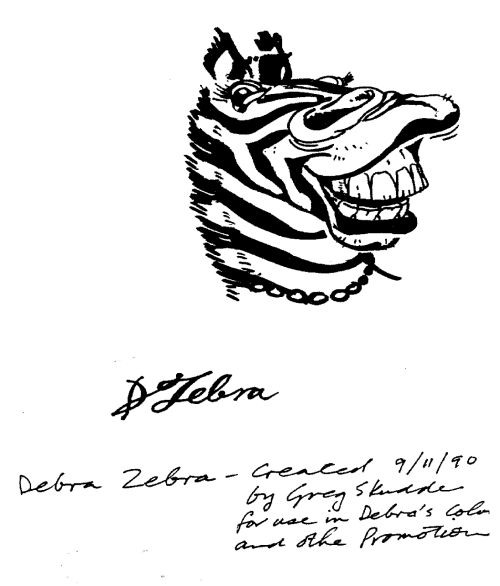 D Zebra
Debra Zebra - Created 9/11/90
by Greg Skudde
for use in Debra's Colu
and othe Promotion